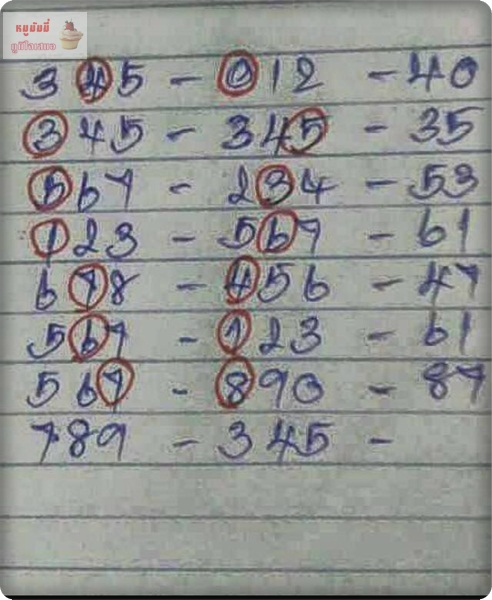 หมูมัมมี่
ภูมิใจเสนอ
345 - 012 - 40
345 - 345 - 35
567 - 234 - 53
123 - 567 - 61
678 - 456 - 47
567 - 123 - 61
567 - 890 - 87
789 - 345 -